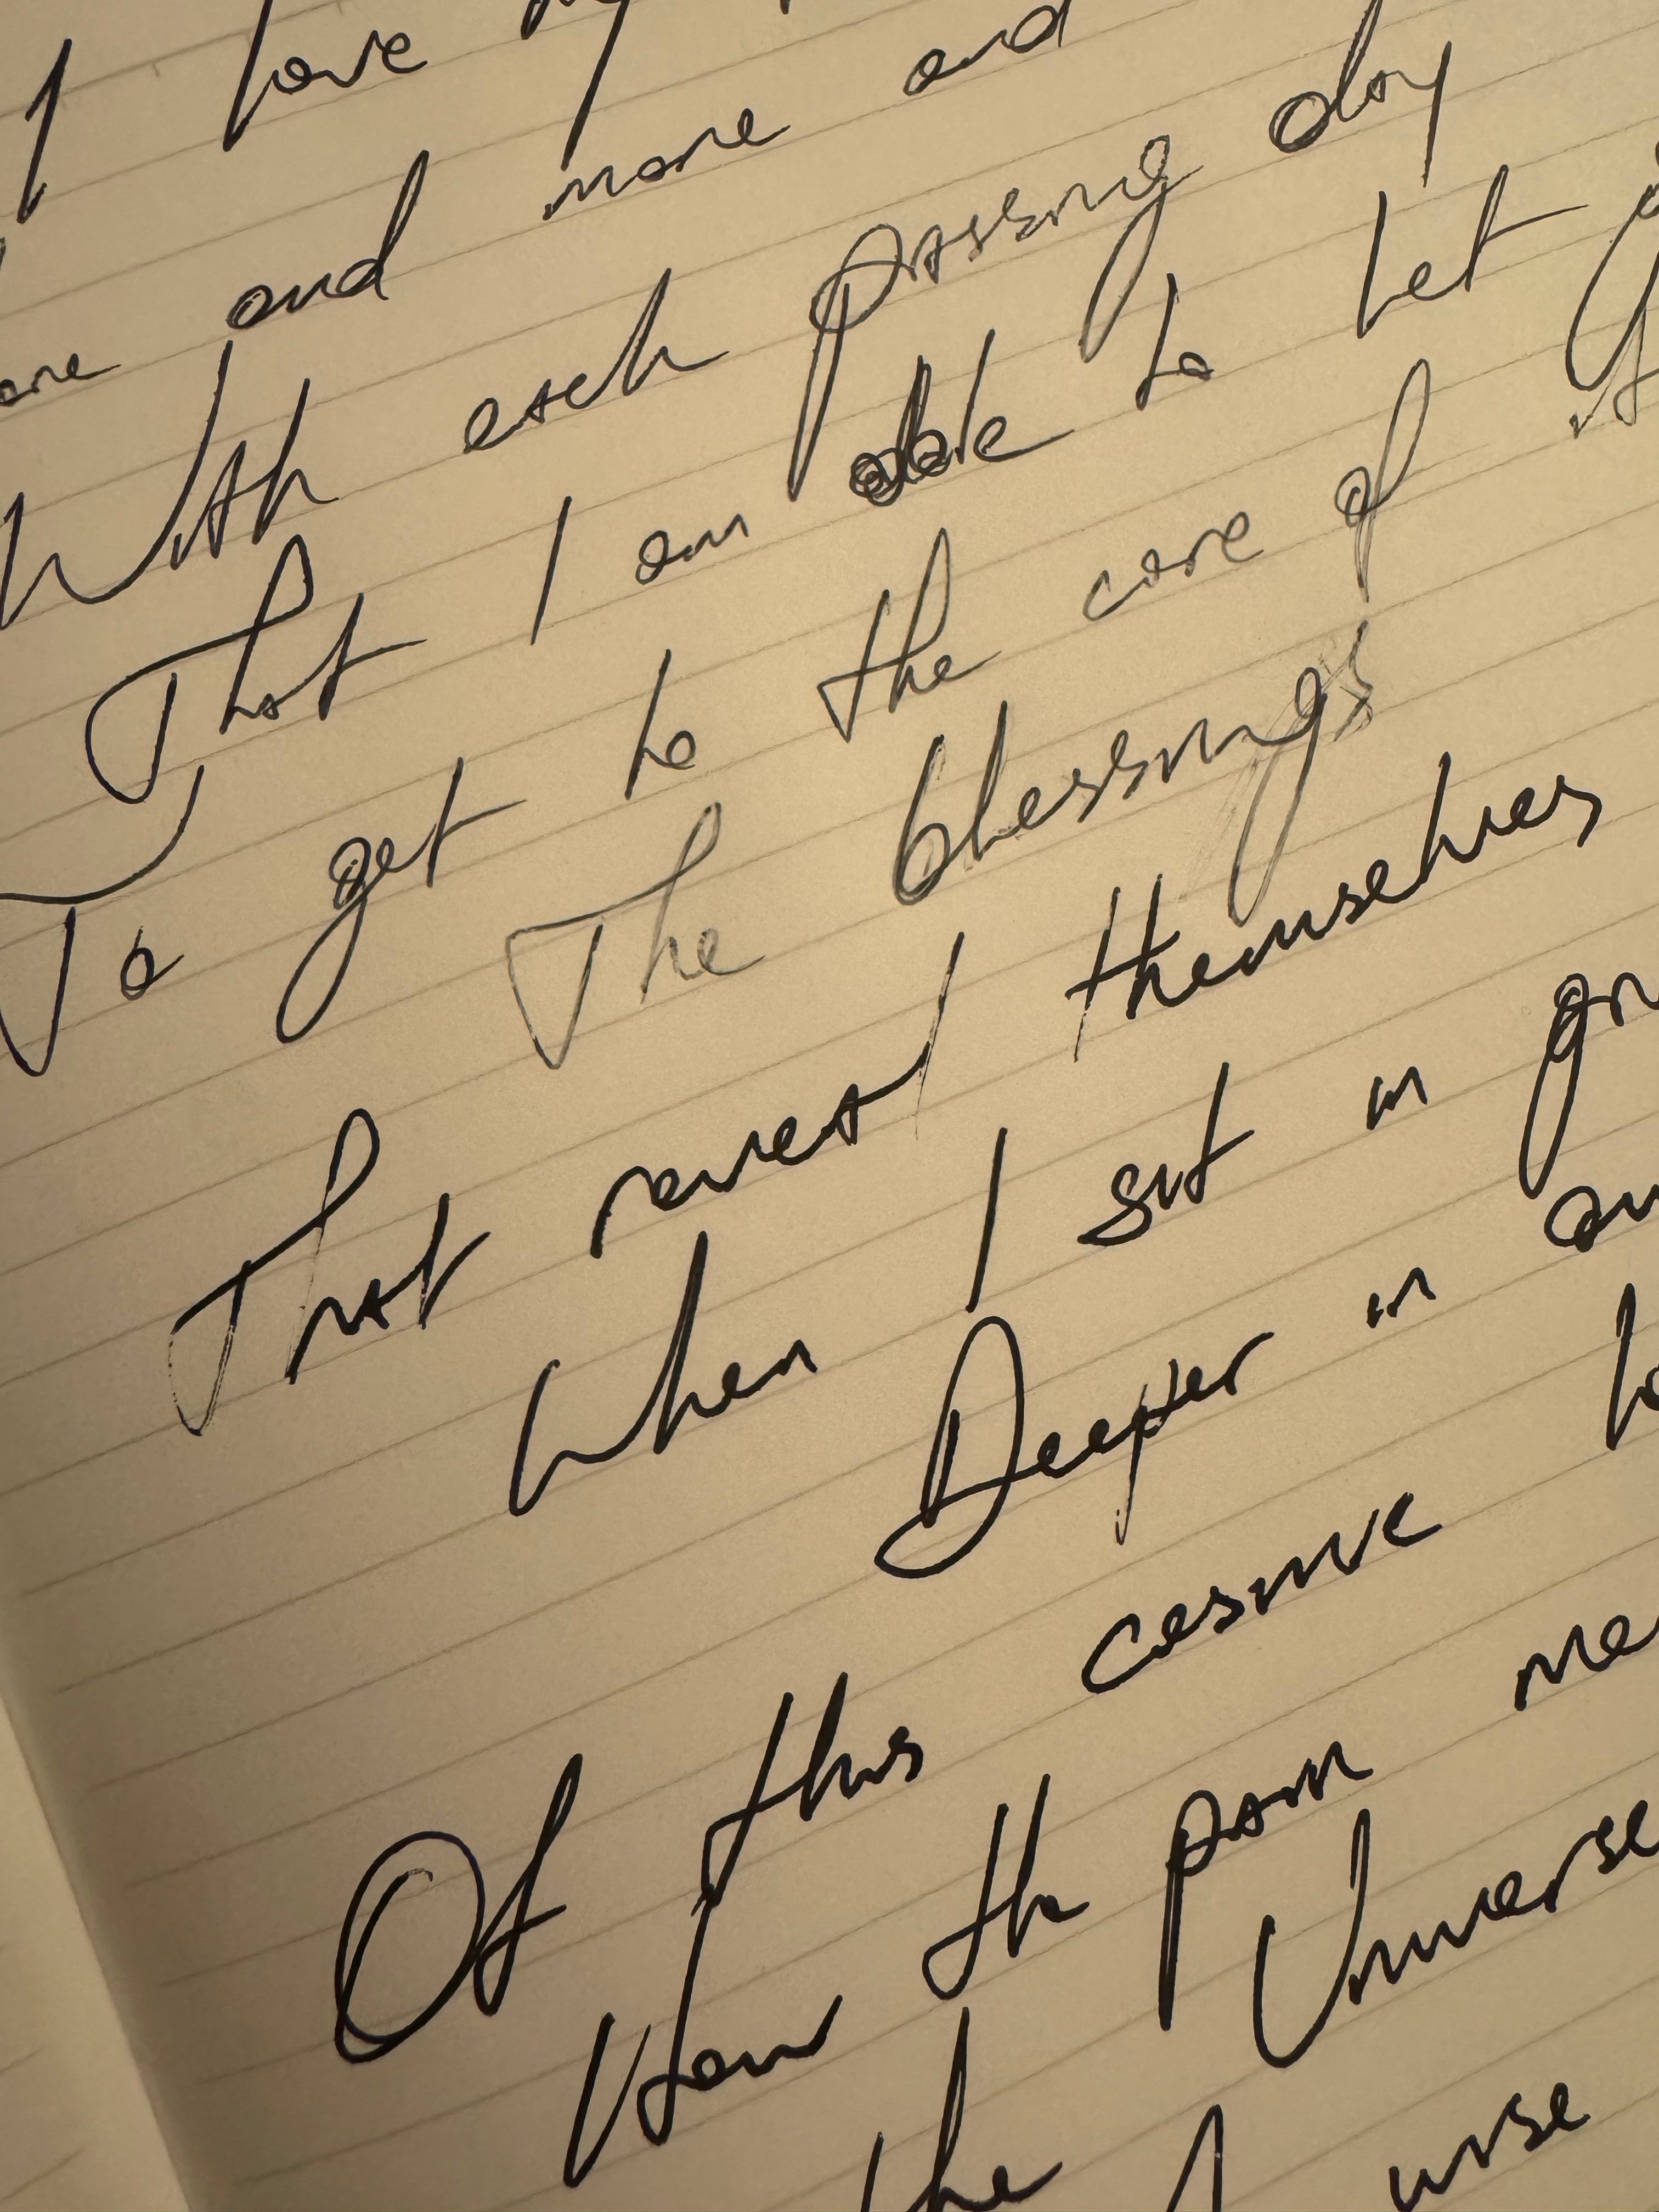 I love my
and more and
With each passing day
That I am able to let
To get to the core of it
The blessings
That reveal themselves
When I sit in
Deeper in
Of this cosmic
How the pain
Universe
the I wise